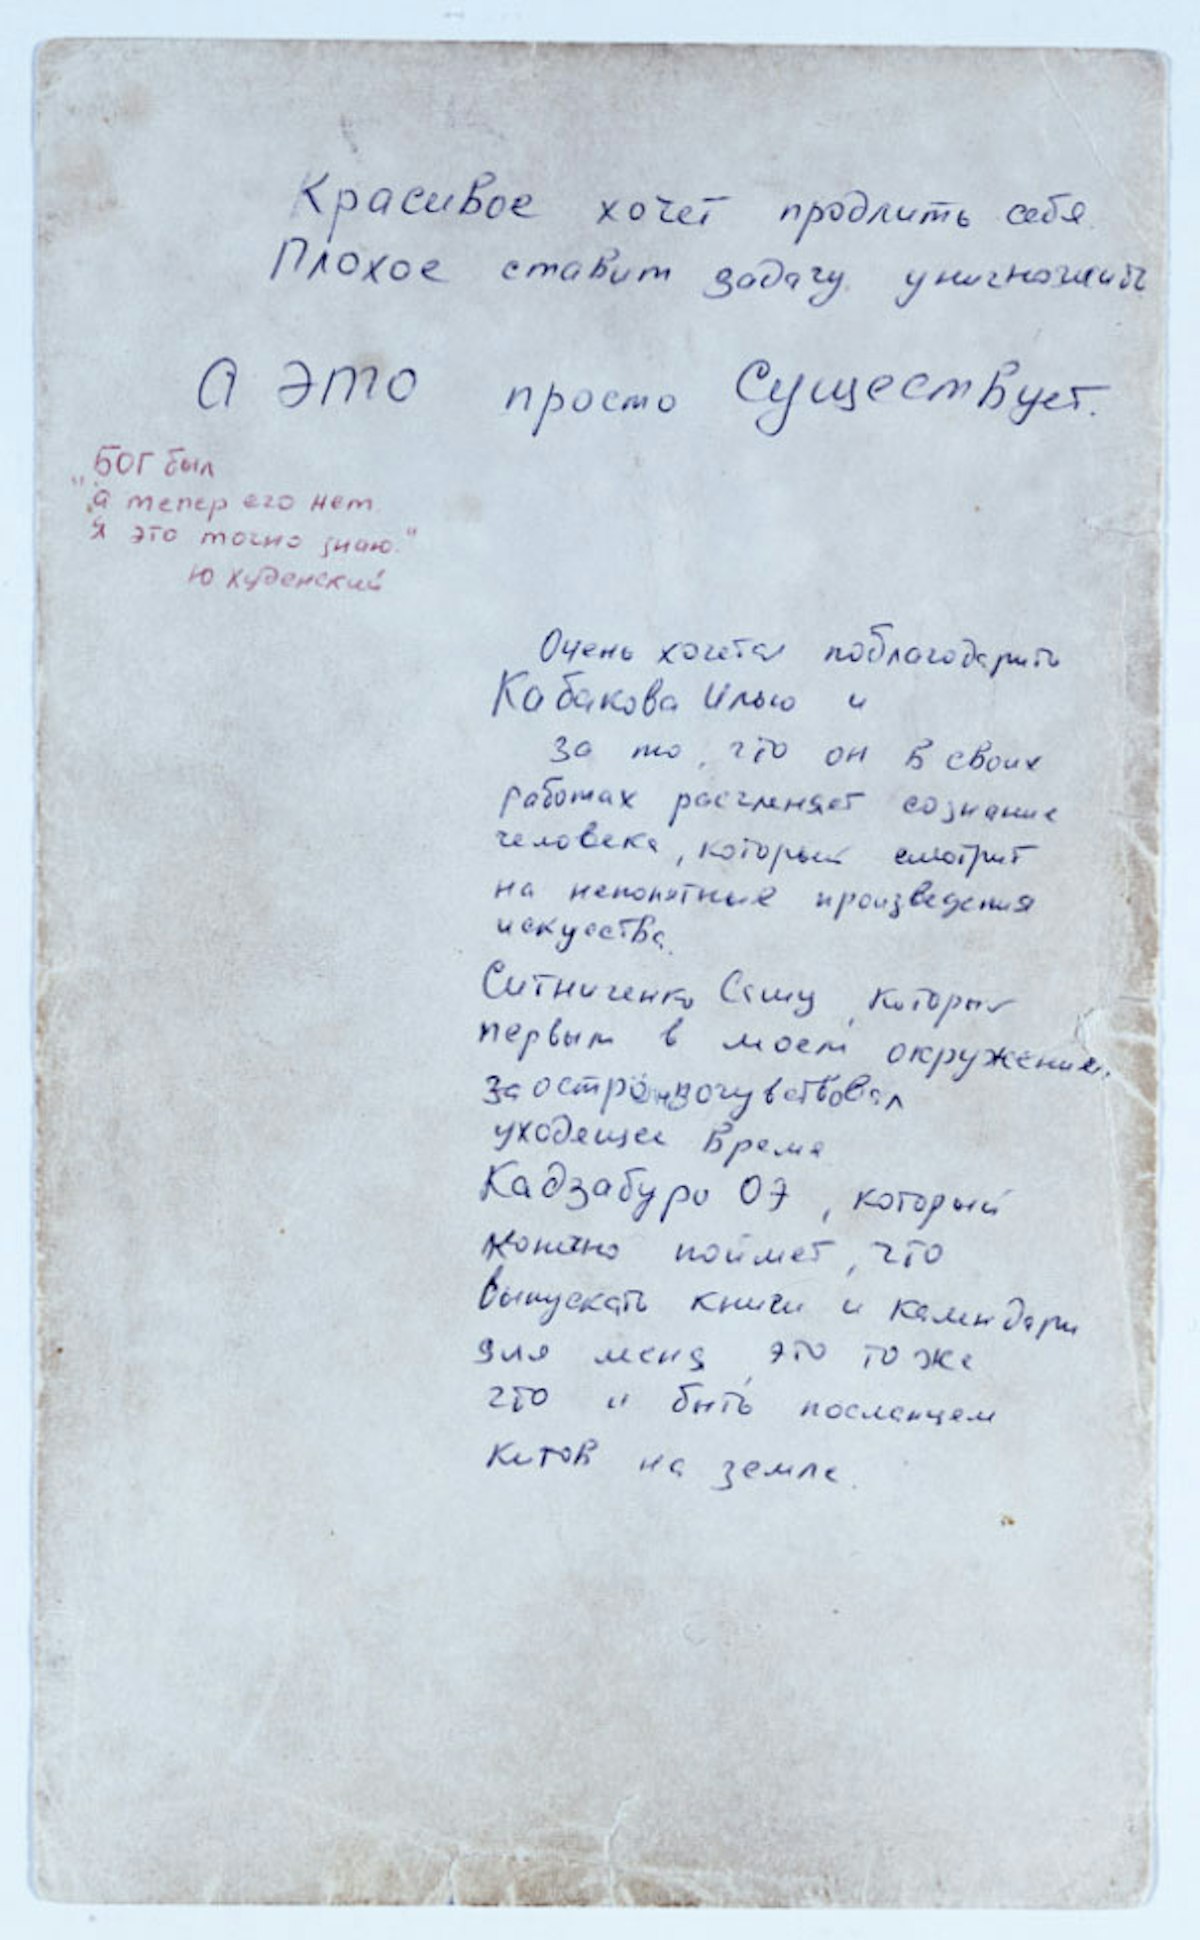 Красивое хочет продлить себя.
Плохое ставит задачу уничтожить
А это просто существует.
Бог был
"а тепер его нет.
Я это точно знаю."
Ю Худенский
Очень хочется поблагодарить
Кабакова Илью и
за то, что он в своих
работах расчленяет сознание
человека, который смотрит
на непонятные произведения
искусства.
Ситниченко Сашу, который
первым в моем окружении
заостренно
уходящее время
Кадзабуро ОЭ, который
конечно поймет, что
выпускать книги и календари
для меня, это то же
что и быть посланцем
китов на земле.